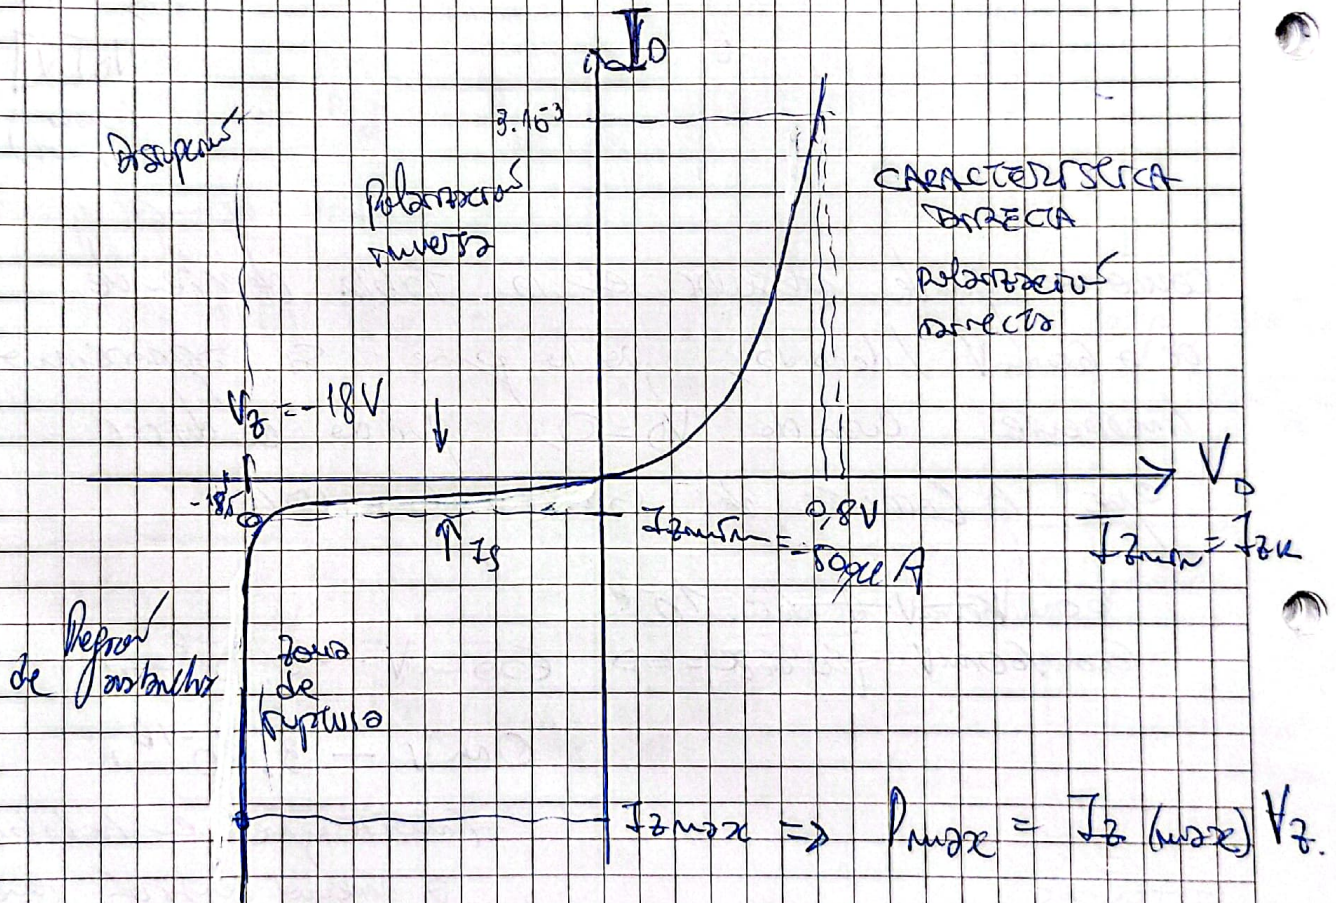 I_D
3.10⁻³
Disrupción
Polarización
inversa
CARACTERÍSTICA
DIRECTA
polarización
directa
V_Z = -18V
V_D
-18,5
0,8V
I_S
I_Zmín = -50μA
I_Zmín = I_ZK
Región
de avalancha
zona
de
ruptura
I_Zmax => P_max = I_Z (max) V_Z.